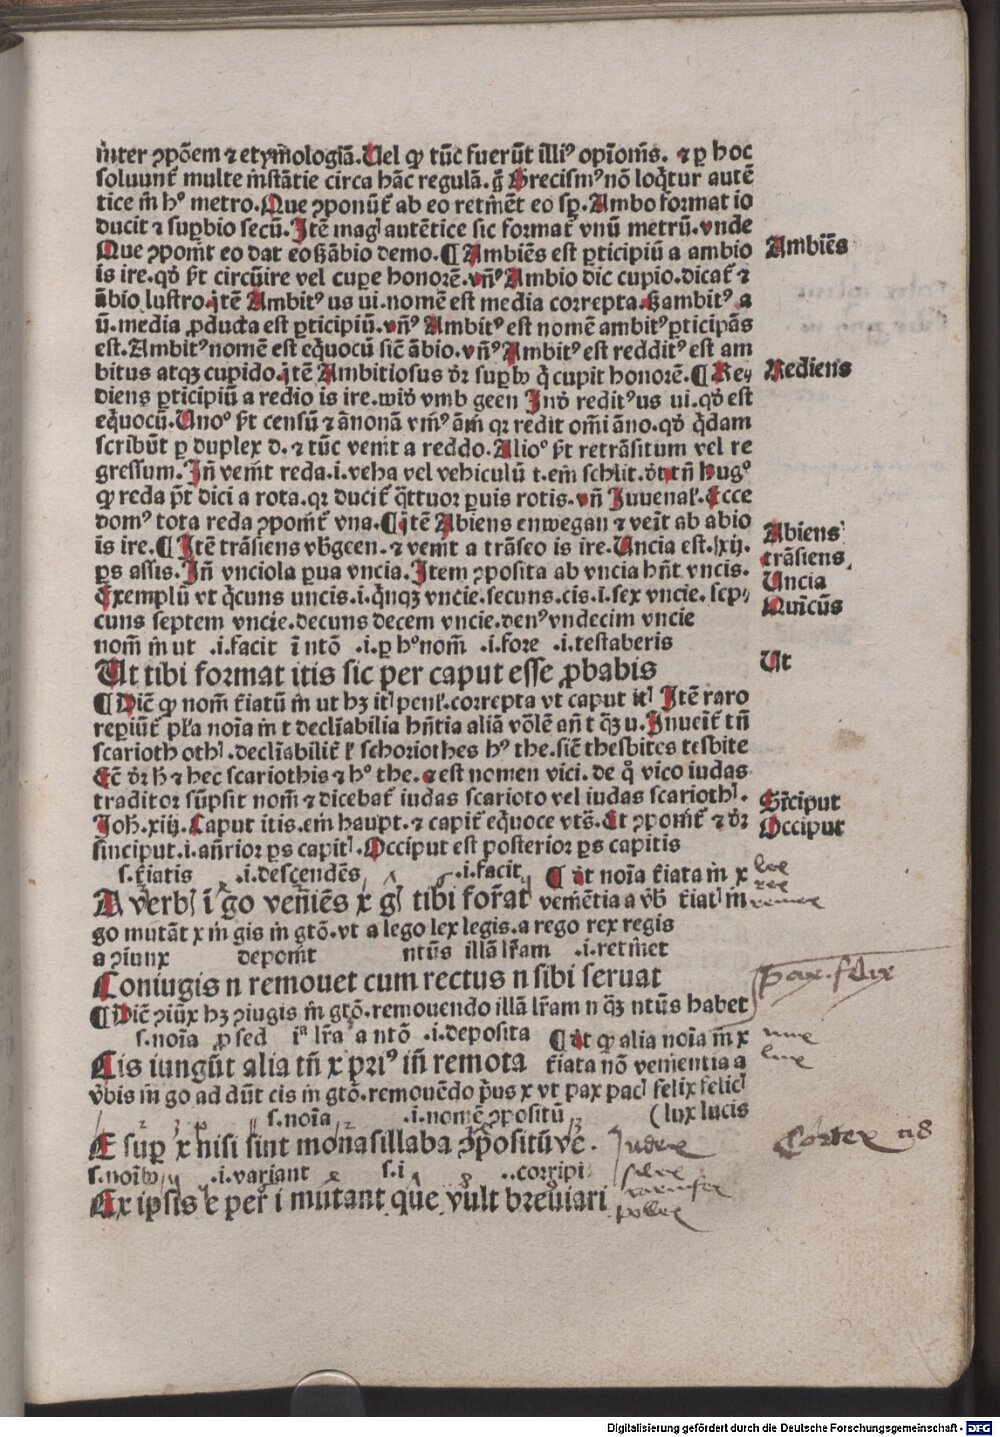 inter ꝯpõem ⁊ etym̃ologiã. Uel ꝙ tũc fuerũt illiꝰ opĩoĩs. ⁊ ꝑ hoc
soluunt̃ multe instãtie circa hãc regulã. g̃ Precismꝰ nõ loq̃tur autẽ
tice in hꝰ metro. Que ꝯponũt̃ ab eo retinẽt eo sꝑ. Ambo format io
ducit ⁊ suꝑbio secũ. Itẽ magꝭ autẽtice sic format̃ vnũ metrũ. vnde
Que ꝯponit̃ eo dat eo ß ãbio demo. ¶ Ambiẽs est ꝑticipiũ a ambio
is ire. qð ßt circũire vel cupe honorẽ. vñꝰ Ambio dic cupio. dicat̃ ⁊
ãbio lustro. itẽ Ambitꝰ us ui. nomẽ est media correpta. ß ambitꝰ a
ũ. media ꝓducta est ꝑticipiũ. vñꝰ Ambitꝰ est nomẽ ambitꝰ ꝑticipãs
est. Ambitꝰ nomẽ est eq̃uocũ sic̃ ãbio. vñꝰ Ambitꝰ est redditꝰ est am
bitus atqꝫ cupido. itẽ Ambitiosus ðr suꝑbꝰ q̃ cupit honorẽ. ¶ Re
diens ꝑticipiũ a redio is ire. wið vmb geen Inð reditꝰ us ui. qð est
eq̃uocũ. Unoº ßt censũ ⁊ ãnonã vniꝰ ãni qꝛ redit om̃i ãno. qð q̃dam
scribũt ꝑ duplex d. ⁊ tũc venit a reddo. Alioº ßt retrãsitum vel re
gressum. Iñ venit reda .i. veha vel vehiculũ t.em̃ schlit. ðt tñ hugº
ꝙ reda p̃t dici a rota. qꝛ ducit̃ q̃ttuor ꝑuis rotis. vñ Iuuenal̃. Ecce
domꝰ tota reda ꝯponit̃ vna. ¶ itẽ Abiens enwegan ⁊ veit ab abio
is ire. ¶ Itẽ trãsiens vb̃geen. ⁊ venit a trãseo is ire. Uncia est .lxij.
ꝑs assis. Iñ vnciola ꝑua vncia. Item ꝯposita ab vncia hñt vncis.
Exemplũ vt q̃cuns uncis .i. q̃nqꝫ vncie. secuns. cis .i. sex vncie. sep
cuns septem vncie. decuns decem vncie. denꝰ vndecim vncie
nom̃ in ut .i. facit ĩ ntõ .i. ꝑ hº nom̃ .i. fore .i. testaberis
Ut tibi format itis sic per caput esse ꝓbabis
¶ Dic̃ ꝙ nom̃ t̃iatũ in ut hꝫ itꝭ penl̃. correpta vt caput itꝭ Itẽ raro
reꝑiũt̃ pl̃a noĩa in t declĩabilia hñtia aliã võlẽ añ t q̃ꝫ u. Inueit̃ tñ
scarioth othꝭ. declĩabilit̃ l̃ schoriothes hº the. sic̃ thesbites tesbite
Ec̃ ðr h̃ ⁊ hec scariothis ⁊ hº the. ⁊ est nomen vici. de q̊ vico iudas
traditor sũpsit nom̃ ⁊ dicebat̃ iudas scarioto vel iudas scariothꝭ.
Joh̃. xiij. Caput itis. em̃ haupt. ⁊ capit̃ eq̃uoce vts̃. Et ꝯponit̃ ⁊ ðr
sinciput .i. añrior ꝑs capitꝭ. Occiput est posterior ꝑs capitis
s. t̃iatis .i. descendẽs .i. facit ¶ Dt noĩa t̃iata in x
A verbꝭ ĩ go veniẽs x gꝭ tibi for̃at veniẽtia a vb̃ t̃iatꝭ in
go mutãt x in gis in gtõ. vt a lego lex legis. a rego rex regis
a ꝯiunx deponit ntũs illã lr̃am .i. retinet
Coniugis n remouet cum rectus n sibi seruat
¶ Dic̃ ꝯiũx hꝫ ꝯiugis in gtõ. remouendo illã lr̃am n q̃ꝫ ntũs habet
s. noĩa ꝓ sed ĩª lr̃a a ntõ .i. deposita ¶ Dt ꝙ alia noĩa in x
Cis iungũt alia tñ x priꝰ iñ remota t̃iata nõ venientia a
v̊bis in go ad dũt cis in gtõ. remouẽdo p̃us x vt pax pacꝭ felix felicꝭ
s. noĩa .i. nomẽ ꝯpositũ (lux lucis
E suꝑ x nisi sint monasillaba ꝯpositũve.
s. noĩbꝰ .i. variant s. i ..corripi
Ex ipsis e per i mutant que vult breuiari
Ambiẽs
Rediens
Abiens
trãsiens
Uncia
Quĩcũs
Ut
Sĩciput
Occiput
lex
rex
remex
pax. felix
nux
lux
Cortex
Judex
silex
pollex
Digitalisierung gefördert durch die Deutsche Forschungsgemeinschaft - DFG